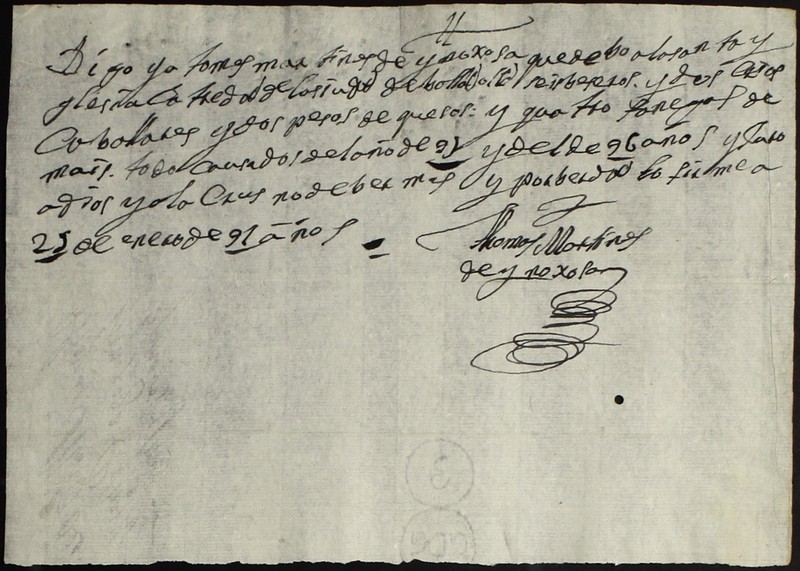 Digo yo tomas martines de ynoxosa que debo a la santa y
glesia Catredal de la siudad de balladolid seis beseros. y dos Crias
Caballares y dos pesos de quesos. y quatro fanegas de
mais. todo Causados del año de 95 y del de 96 años y Juro
a dios y a la Crus no deber mas y por berdad lo firme a
25 de enero de 97 años
Thomas Martines
de ynoxosa